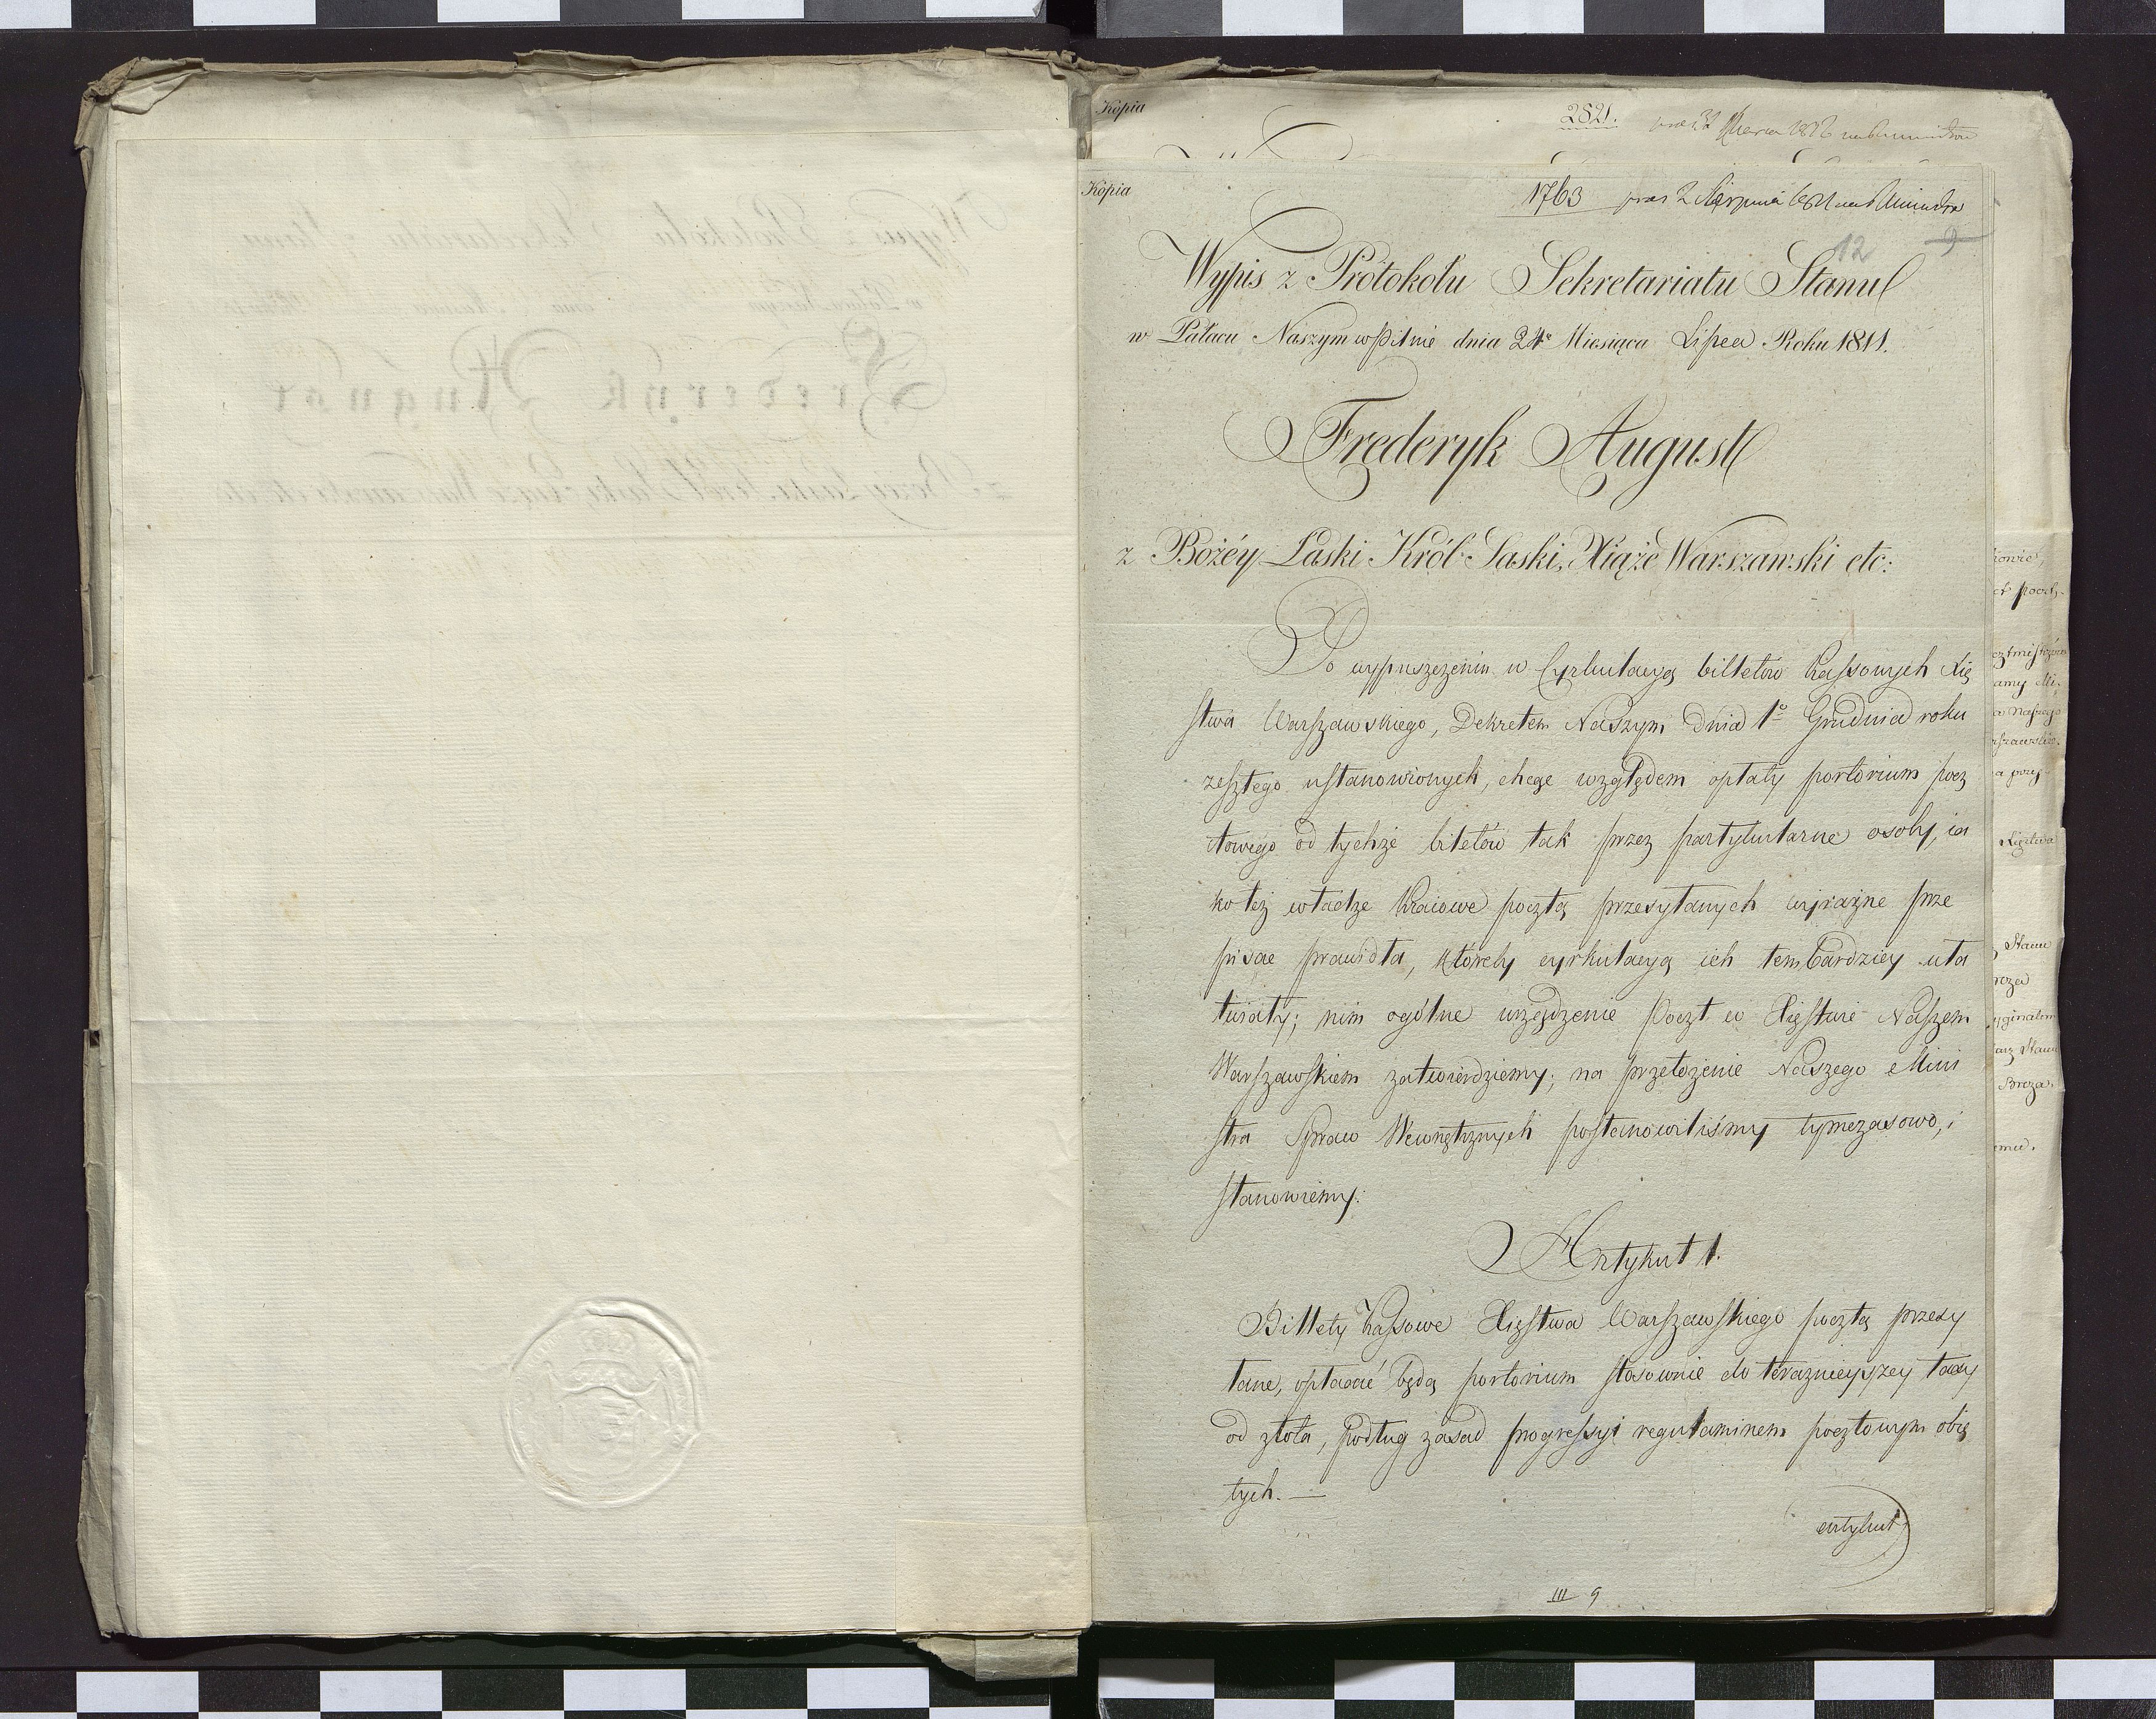 Kópia
282.
Kópia
1763 praes 2 Sierpnia 1811
12 9
Wypis z Protokołu Sekretariatu Stanu
w Pałacu Naszym w Pilnie dnia 24º Miesiąca Lipca Roku 1811.
Frederyk August
z Bożéy Łaski Król Saski, Xiąże Warszawski etc:
Po wypuszczeniu w Cyrkulacyą billetów kassowych Xię
stwa Warszawskiego, Dekretem Naszym dnia 1º Grudnia roku
zeszłego ustanowionych, chcąc względem opłaty portorium pocz
towego od tychże biletów tak przez partykularne osoby, ia
ko też władze Kraiowe pocztą przesyłanych wyraźne prze
pisać prawidła, któreby cyrkulacyą ich tembardziey uła
twiały; nim ogólne urządzenie Poczt w Xięstwie Naszem
Warszawskiem zatwierdziemy; na przełożenie Naszego Mini
stra Spraw Wewnętrznych postanowiliśmy tymczasowo, i
stanowiemy:
Artykuł 1.
Billety kassowe Xięstwa Warszawskiego pocztą przesy
łane, opłacać będą portorium stosownie do teraznieyszey taxy
od złota, podług zasad progressyi regulaminem pocztowym obię
tych. —
artykuł
III 9